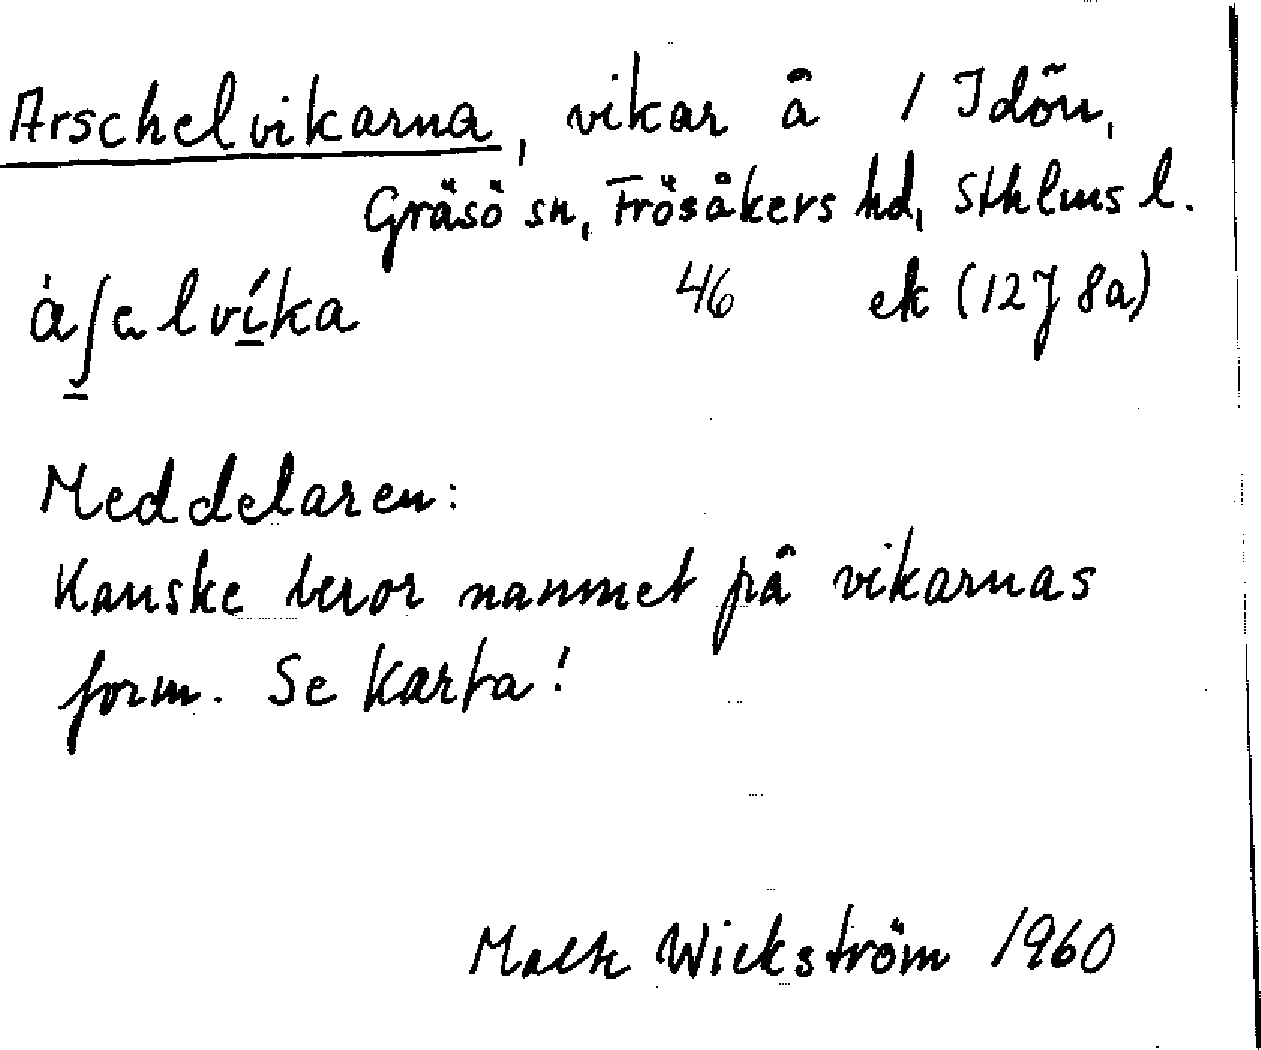 Arschelvikarna, vikar å 1 Idön,
Gräsö sn, Frösåkers hd, Sthlms l.
áʃɑlvíka 46 ek (12J 8a)
Meddelaren:
Kanske beror namnet på vikarnas
form. Se karta!
Wickström 1960